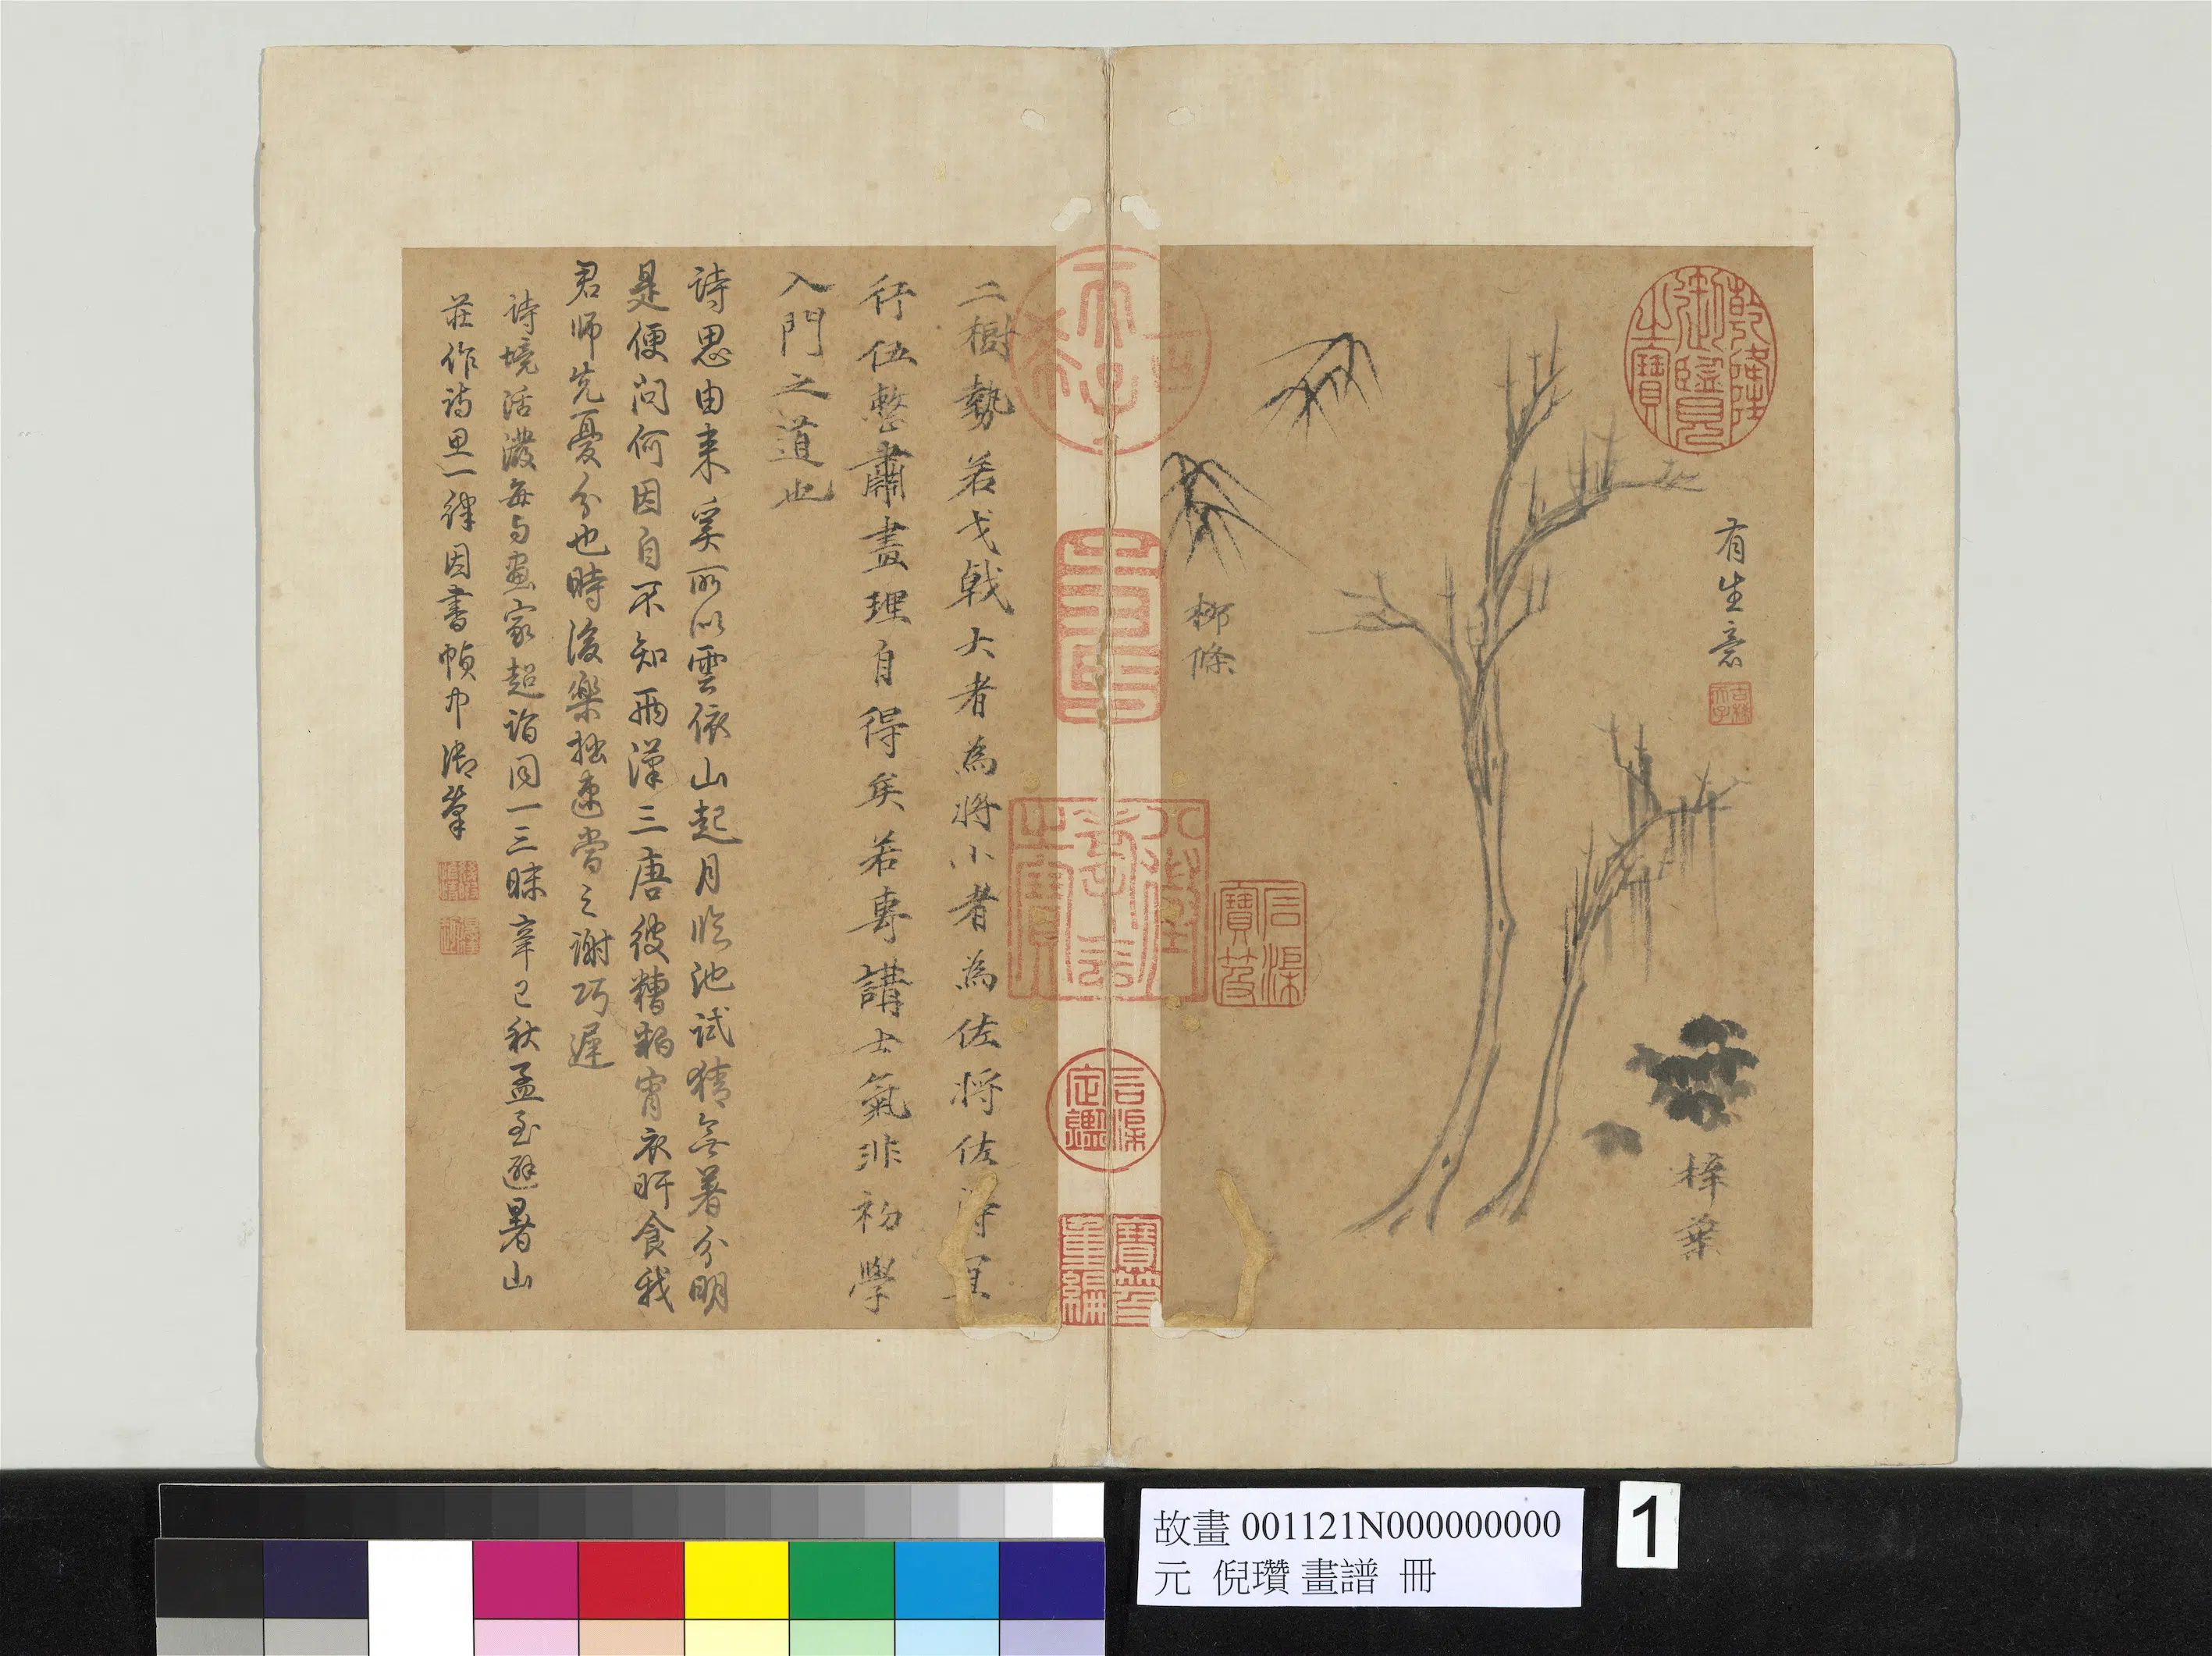 乾隆御覽之寶
有生意
梓葉
柳條
石渠寶笈
八徵耄念之寶
石渠定鑑
寶笈重編
二樹勢若戈戟大者為將小者為佐將佐得宜
行伍整肅畫理自得矣若專講士氣非初學
入門之道也
詩思由来奚所以雲依山起月臨池試猜無著分明
是便問何因自不知兩漢三唐彼糟粕宵衣旰食我
君師先憂分也時後樂拙速當之謝巧遲
詩境活潑每与畫家超詣同一三昧辛巳秋孟至避暑山
莊作詩思一律因書幀中御筆
故畫 001121N000000000
元 倪瓚 畫譜 冊
1